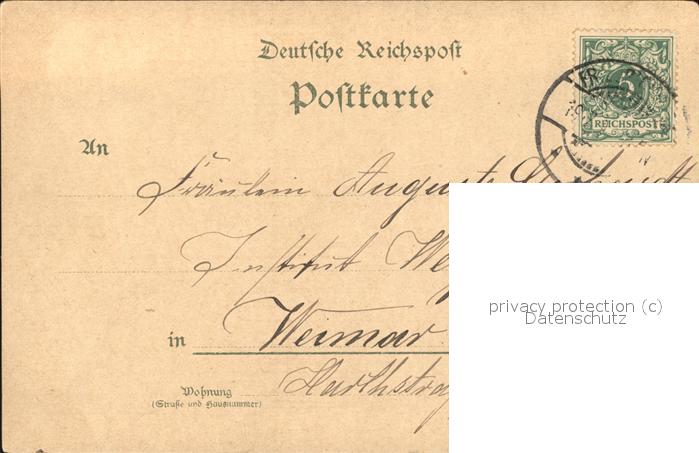 Deutsche Reichspost
Postkarte
5
REICHSPOST
An
Fräulein Auguste
Institut
in Weimar
Wohnung
(Straße und Hausnummer)
privacy protection (c)
Datenschutz